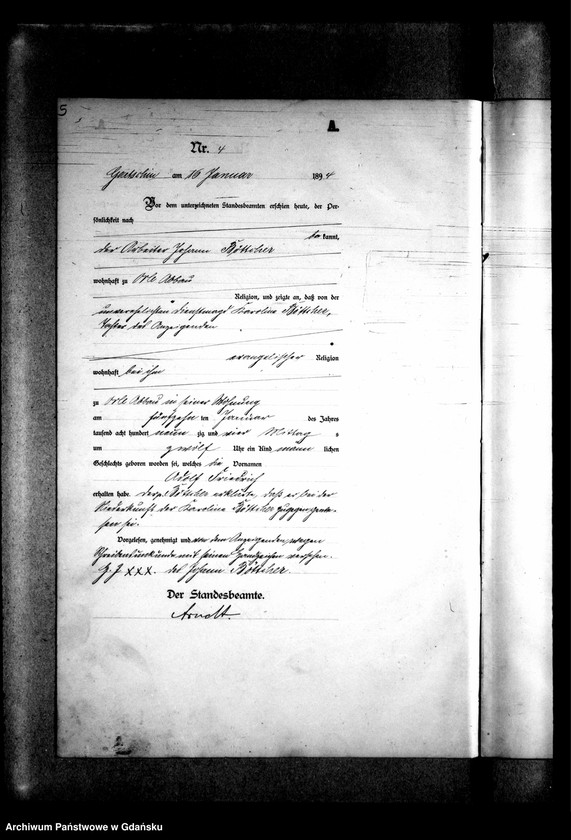 5
A.
Nr. 4
am 16 Januar 1894
Vor dem unterzeichneten Standesbeamten erschien heute, der Per-
sönlichkeit nach
be kannt,
der Arbeiter Johann Böttcher
wohnhaft zu Orle Abbau
Religion, und zeigte an, daß von der
unverehelichten Dienstmagd Karoline Böttcher,
Tochter des Anzeigenden
evangelischer Religion
wohnhaft bei ihm
zu Orle Abbau in seiner Wohnung
am fünfzehn ten Januar des Jahres
tausend acht hundert neun zig und vier Mittag s
um zwölf Uhr ein Kind männ lichen
Geschlechts geboren worden sei, welches die Vornamen
Adolf Friedrich
erhalten habe. Der p. Böttcher erklärte, daß er bei der
Niederkunft der Karoline Böttcher zugegen gewe-
sen sei.
Vorgelesen, genehmigt und von dem Anzeigenden wegen
Schreibensunkunde mit seinem Handzeichen versehen.
H. Z. XXX. des Johann Böttcher.
Der Standesbeamte.
Arndt.
Archiwum Państwowe w Gdańsku